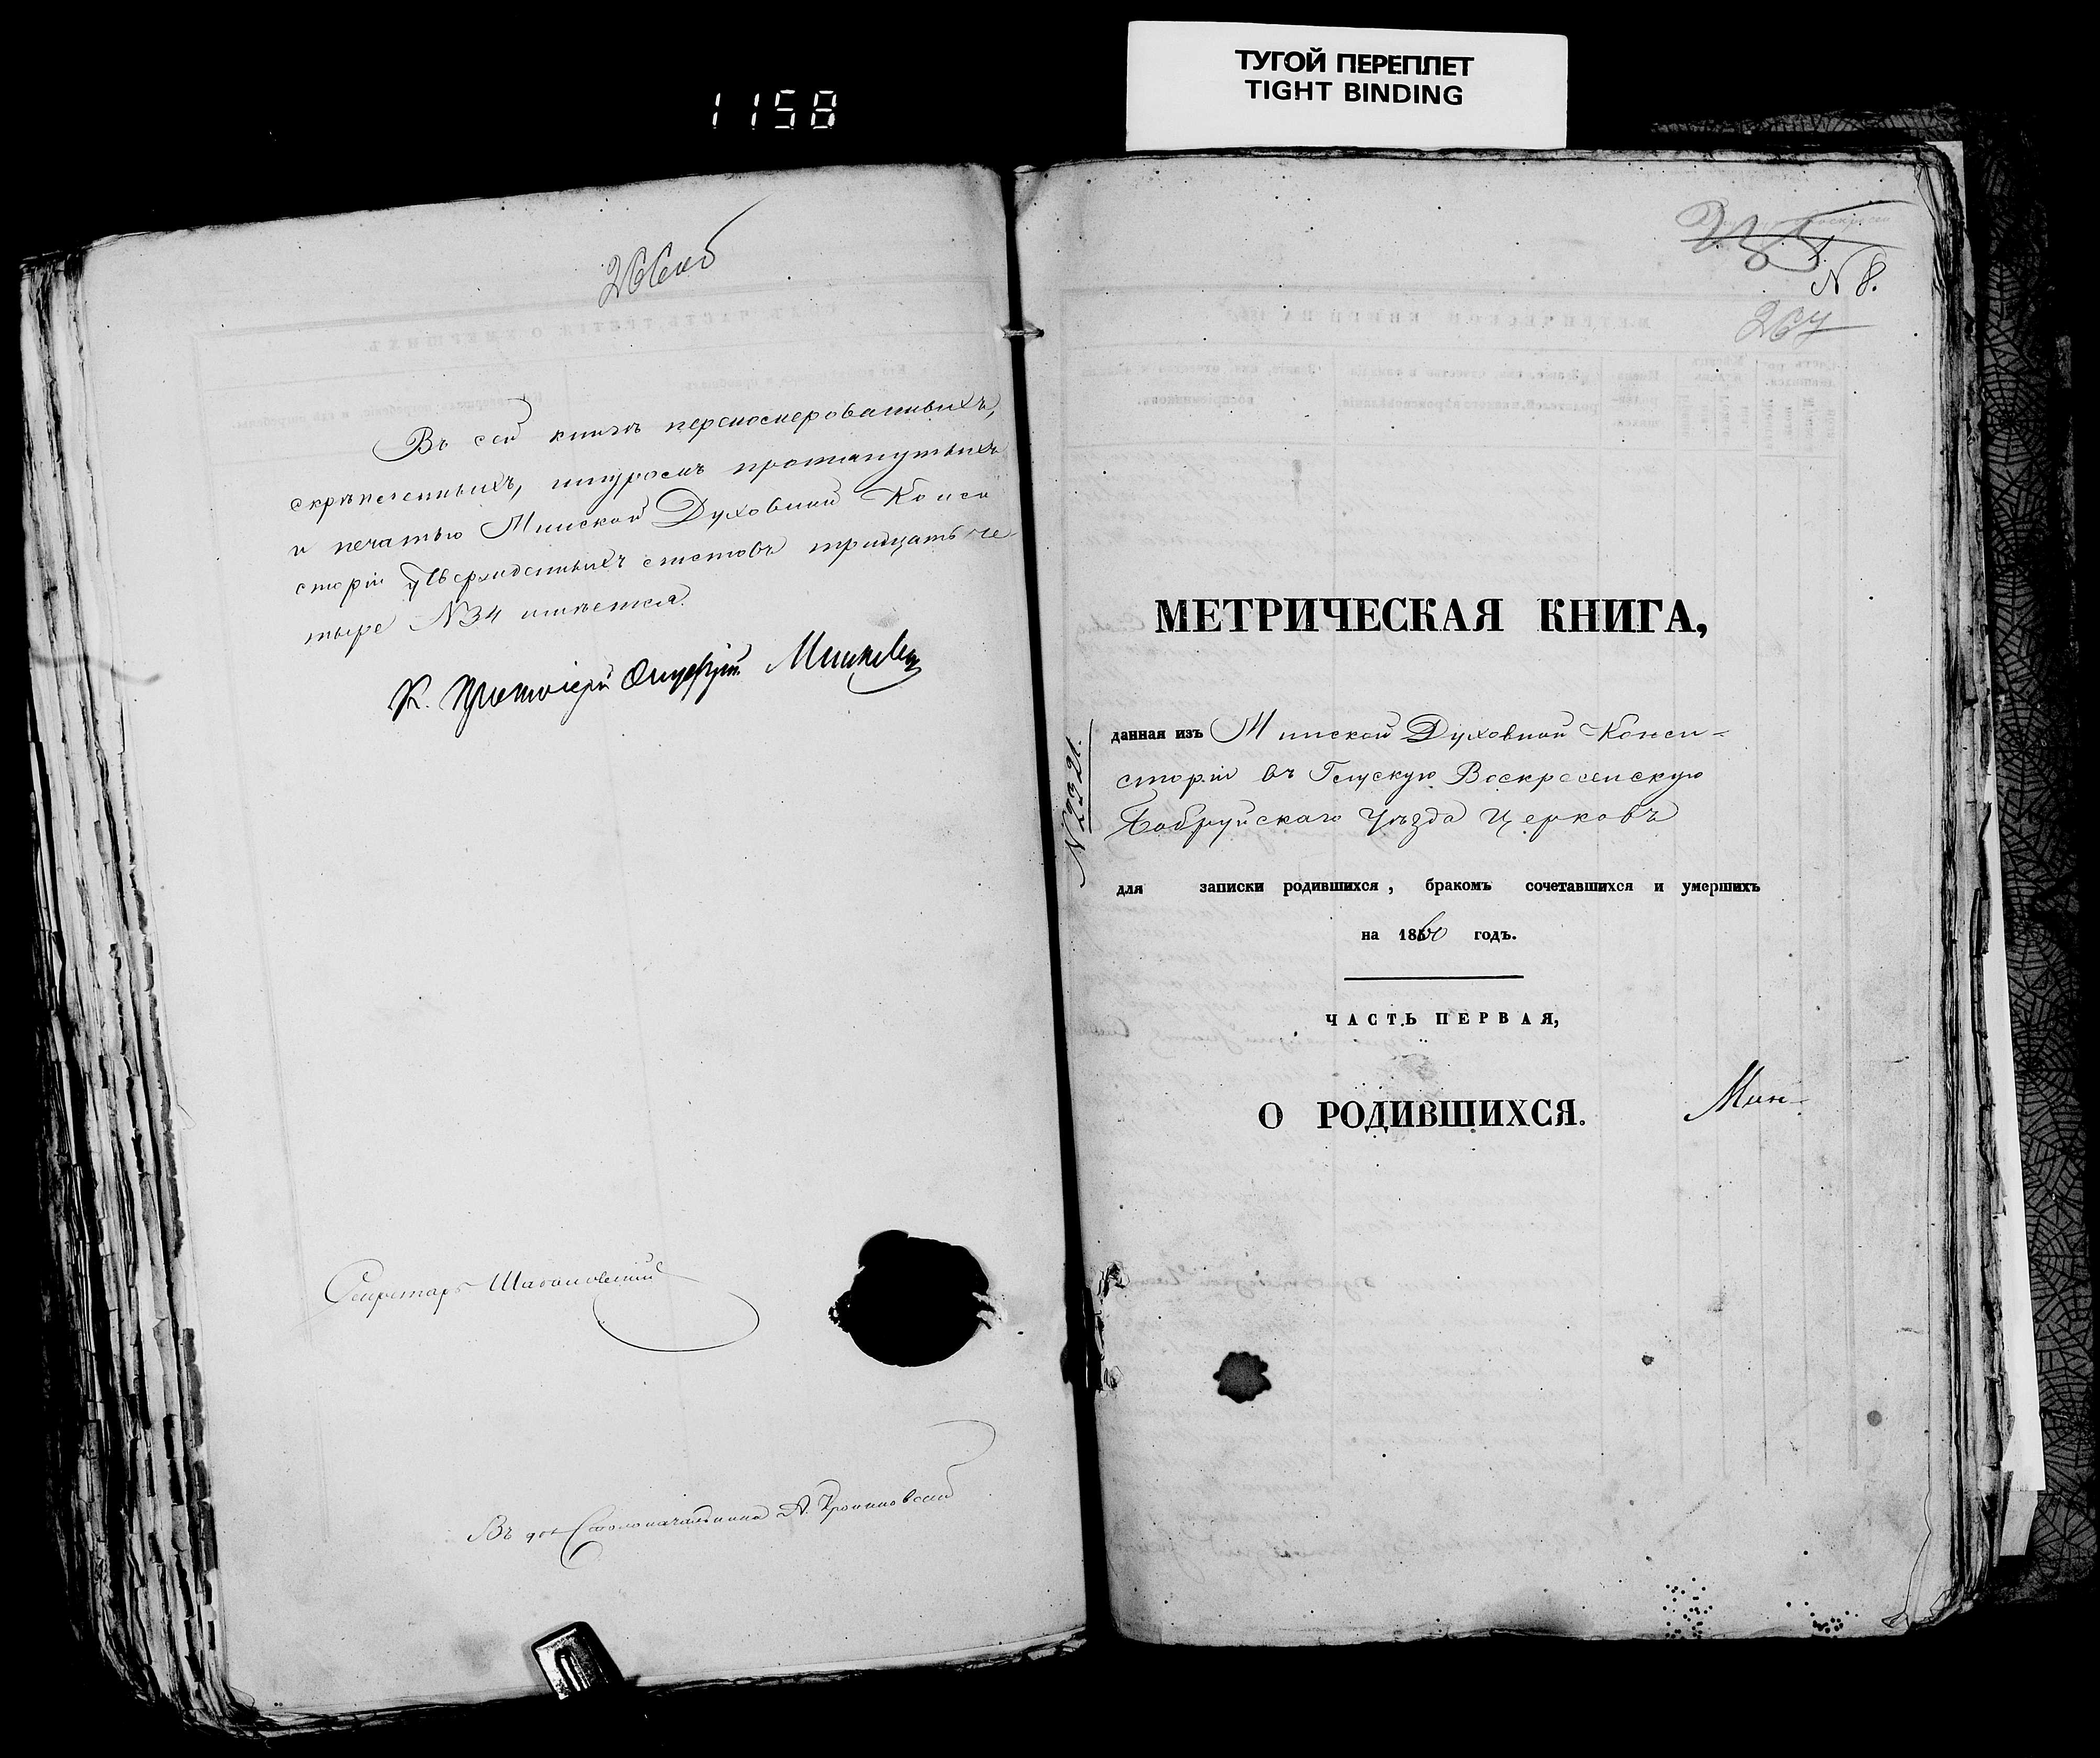 1158
ТУГОЙ ПЕРЕПЛЕТ
TIGHT BINDING
266об
Въ сей книгѣ перенумерованныхъ,
скрѣпленныхъ, шнуромъ протянутыхъ
и печатью Минской Духовной Конси
сторіи утвержденныхъ листовъ тридцать че-
тыре №34 имѣется.
К. Протоіерей Мин
Секретарь
Въ дол. Столоначальника А.
№ 8.
267
МЕТРИЧЕСКАЯ КНИГА,
№ 2321.
данная изъ Минской Духовной Конси-
сторіи въ Глускую Воскресенскую
Бобруйскаго Уѣзда Церковь
для записки родившихся, бракомъ сочетавшихся и умершихъ
на 1860 годъ.
ЧАСТЬ ПЕРВАЯ,
О РОДИВШИХСЯ.
Мин-